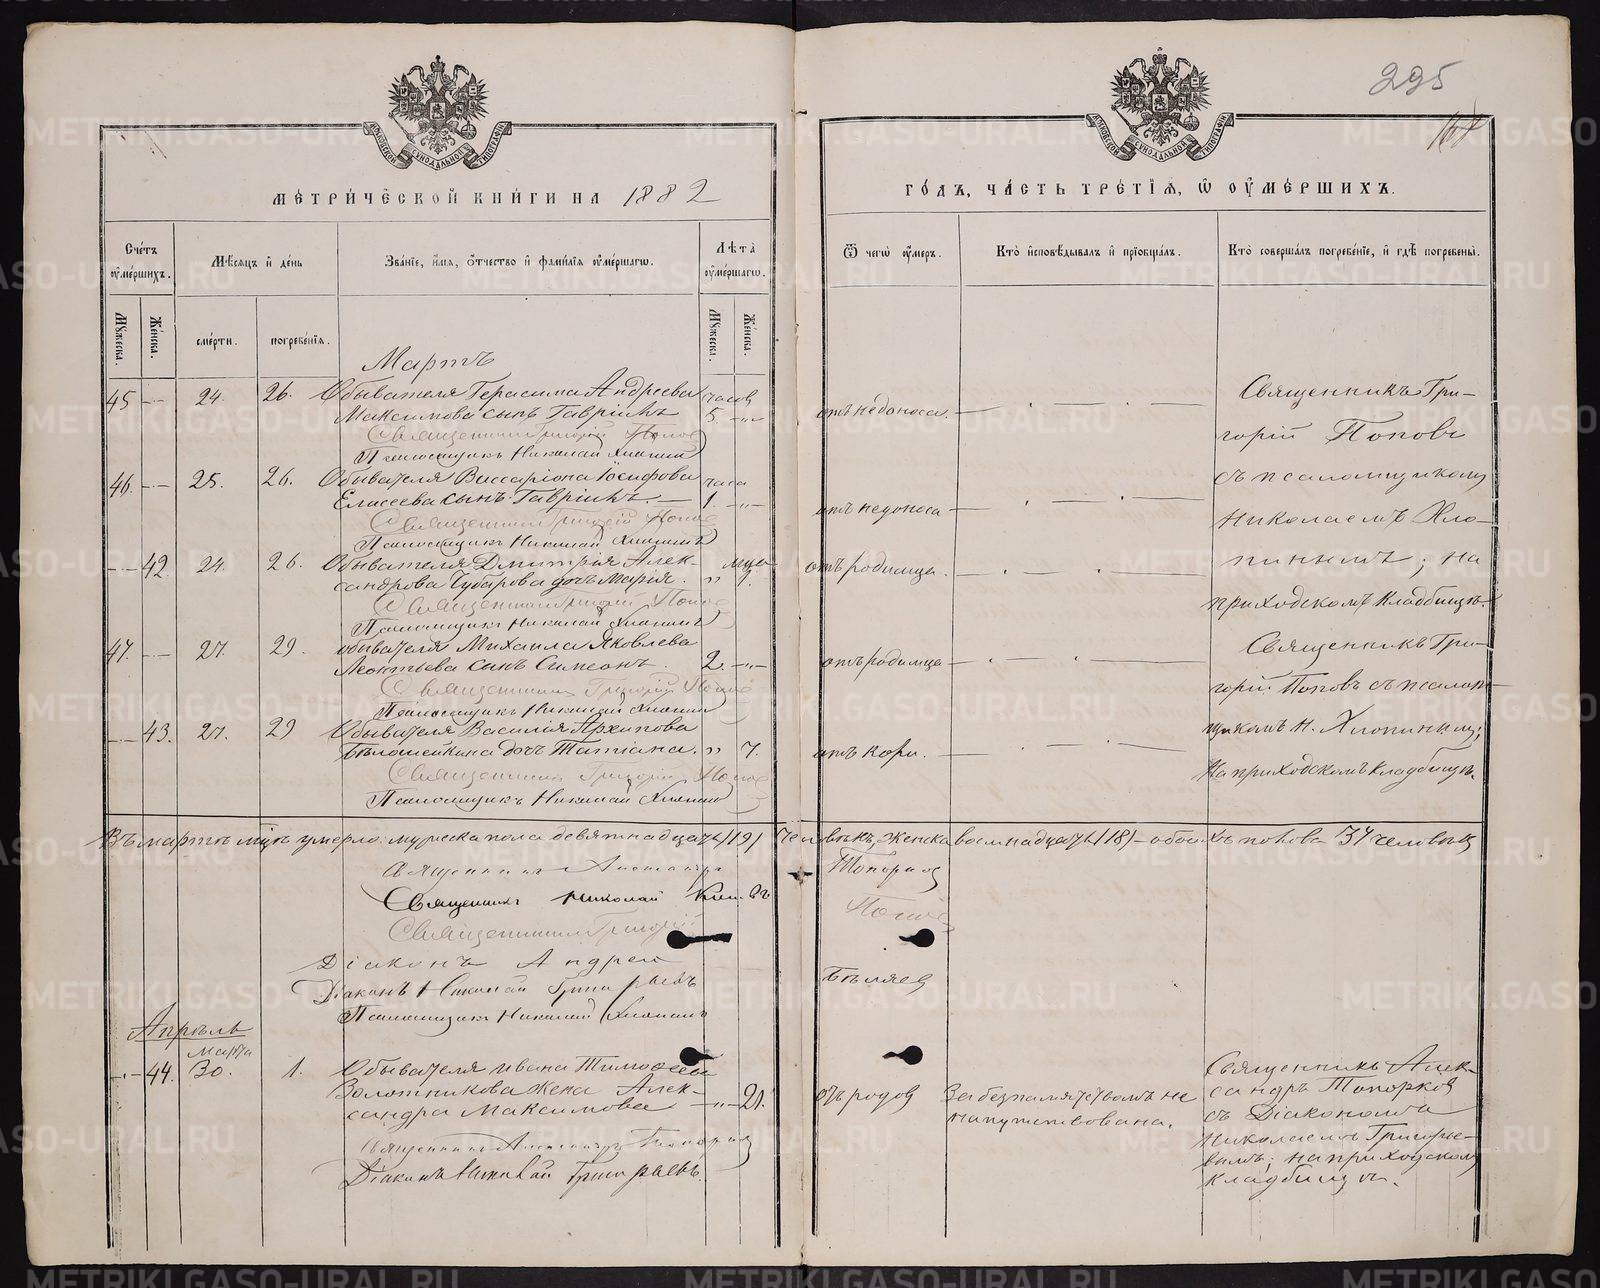 225
МЕТРИЧЕСКОЙ КНИГИ НА 1882
ГОДЪ, ЧАСТЬ ТРЕТІЯ, Ѿ ОУМЕРШИХЪ.
Счетъ оумершихъ.
Мѣсяцъ и день
Званіе, имя, отчество и фамилія оумершагѡ.
Лѣта оумершагѡ.
Ѿ чегѡ оумеръ.
Кто исповѣдывалъ и пріобщалъ.
Кто совершалъ погребеніе, и гдѣ погребены.
Мужеска.
Женска.
смерти.
погребенія.
Мужеска.
Женска.
Мартъ
45 — 24. 26. Обывателя Герасима Андреева часов
Максимова сынъ Гавріилъ 5. —„— отъ недоноса.
Священникъ Григорій Попов
Псаломщикъ Николай Хлопинъ
46. — 25. 26. Обывателя Виссаріона Іосифова часа
Елисеева сынъ Гавріилъ. — 1. —„— отъ недоноса
Священникъ Григорій Попов
Псаломщикъ Николай Хлопинъ
— 42 24. 26. Обывателя Дмитрія Алек- мца
сандрова Губарова дочь Марія. „ 1. отъ родимца.
Священникъ Григорій Попов
Псаломщикъ Николай Хлопинъ
47. — 27. 29. обывателя Михаила Яковлева
Леонтьева сынъ Симеонъ. 2. —„— отъ родимца
Священникъ Григорій Попов
Псаломщикъ Николай Хлопинъ
— 43. 27. 29 Обывателя Василія Архипова
Бѣлошейкина дочь Татіана. „ 7. отъ кори.
Священникъ Григорій Попов
Псаломщикъ Николай Хлопинъ
Священникъ Гри-
горій Поповъ
съ псаломщикомъ
Николаемъ Хло-
пинымъ; на
приходскомъ кладбищѣ.
Священникъ Гри-
горій Поповъ съ псалом-
щикомъ Н. Хлопинымъ;
на приходскомъ кладбищѣ.
Въ мартѣ мцѣ умерло: мужеска пола девятнадцать (19) человѣкъ, женска восемнадцать (18) – обоихъ половъ 37 человѣкъ
Священникъ Александръ Топорков
Священникъ Николай
Священникъ Григорій Попов
Діаконъ Андрей Бѣляев
Діаконъ Николай Григорьевъ
Псаломщикъ Николай Хлопинъ
Апрѣль
Марта
— 44. 30. 1. Обывателя Ивана Тимофеева
Золотникова жена Алек-
сандра Максимова —„— 21. отъ родов
За безпамятствомъ не
напутствована.
Священникъ Алек-
сандръ Топорков
съ Діакономъ
Николаемъ Григорье-
вымъ; на приходском
кладбищѣ.
Священникъ Александръ Топорков
Діаконъ Николай Григорьевъ.
METRIKI.GASO-URAL.RU